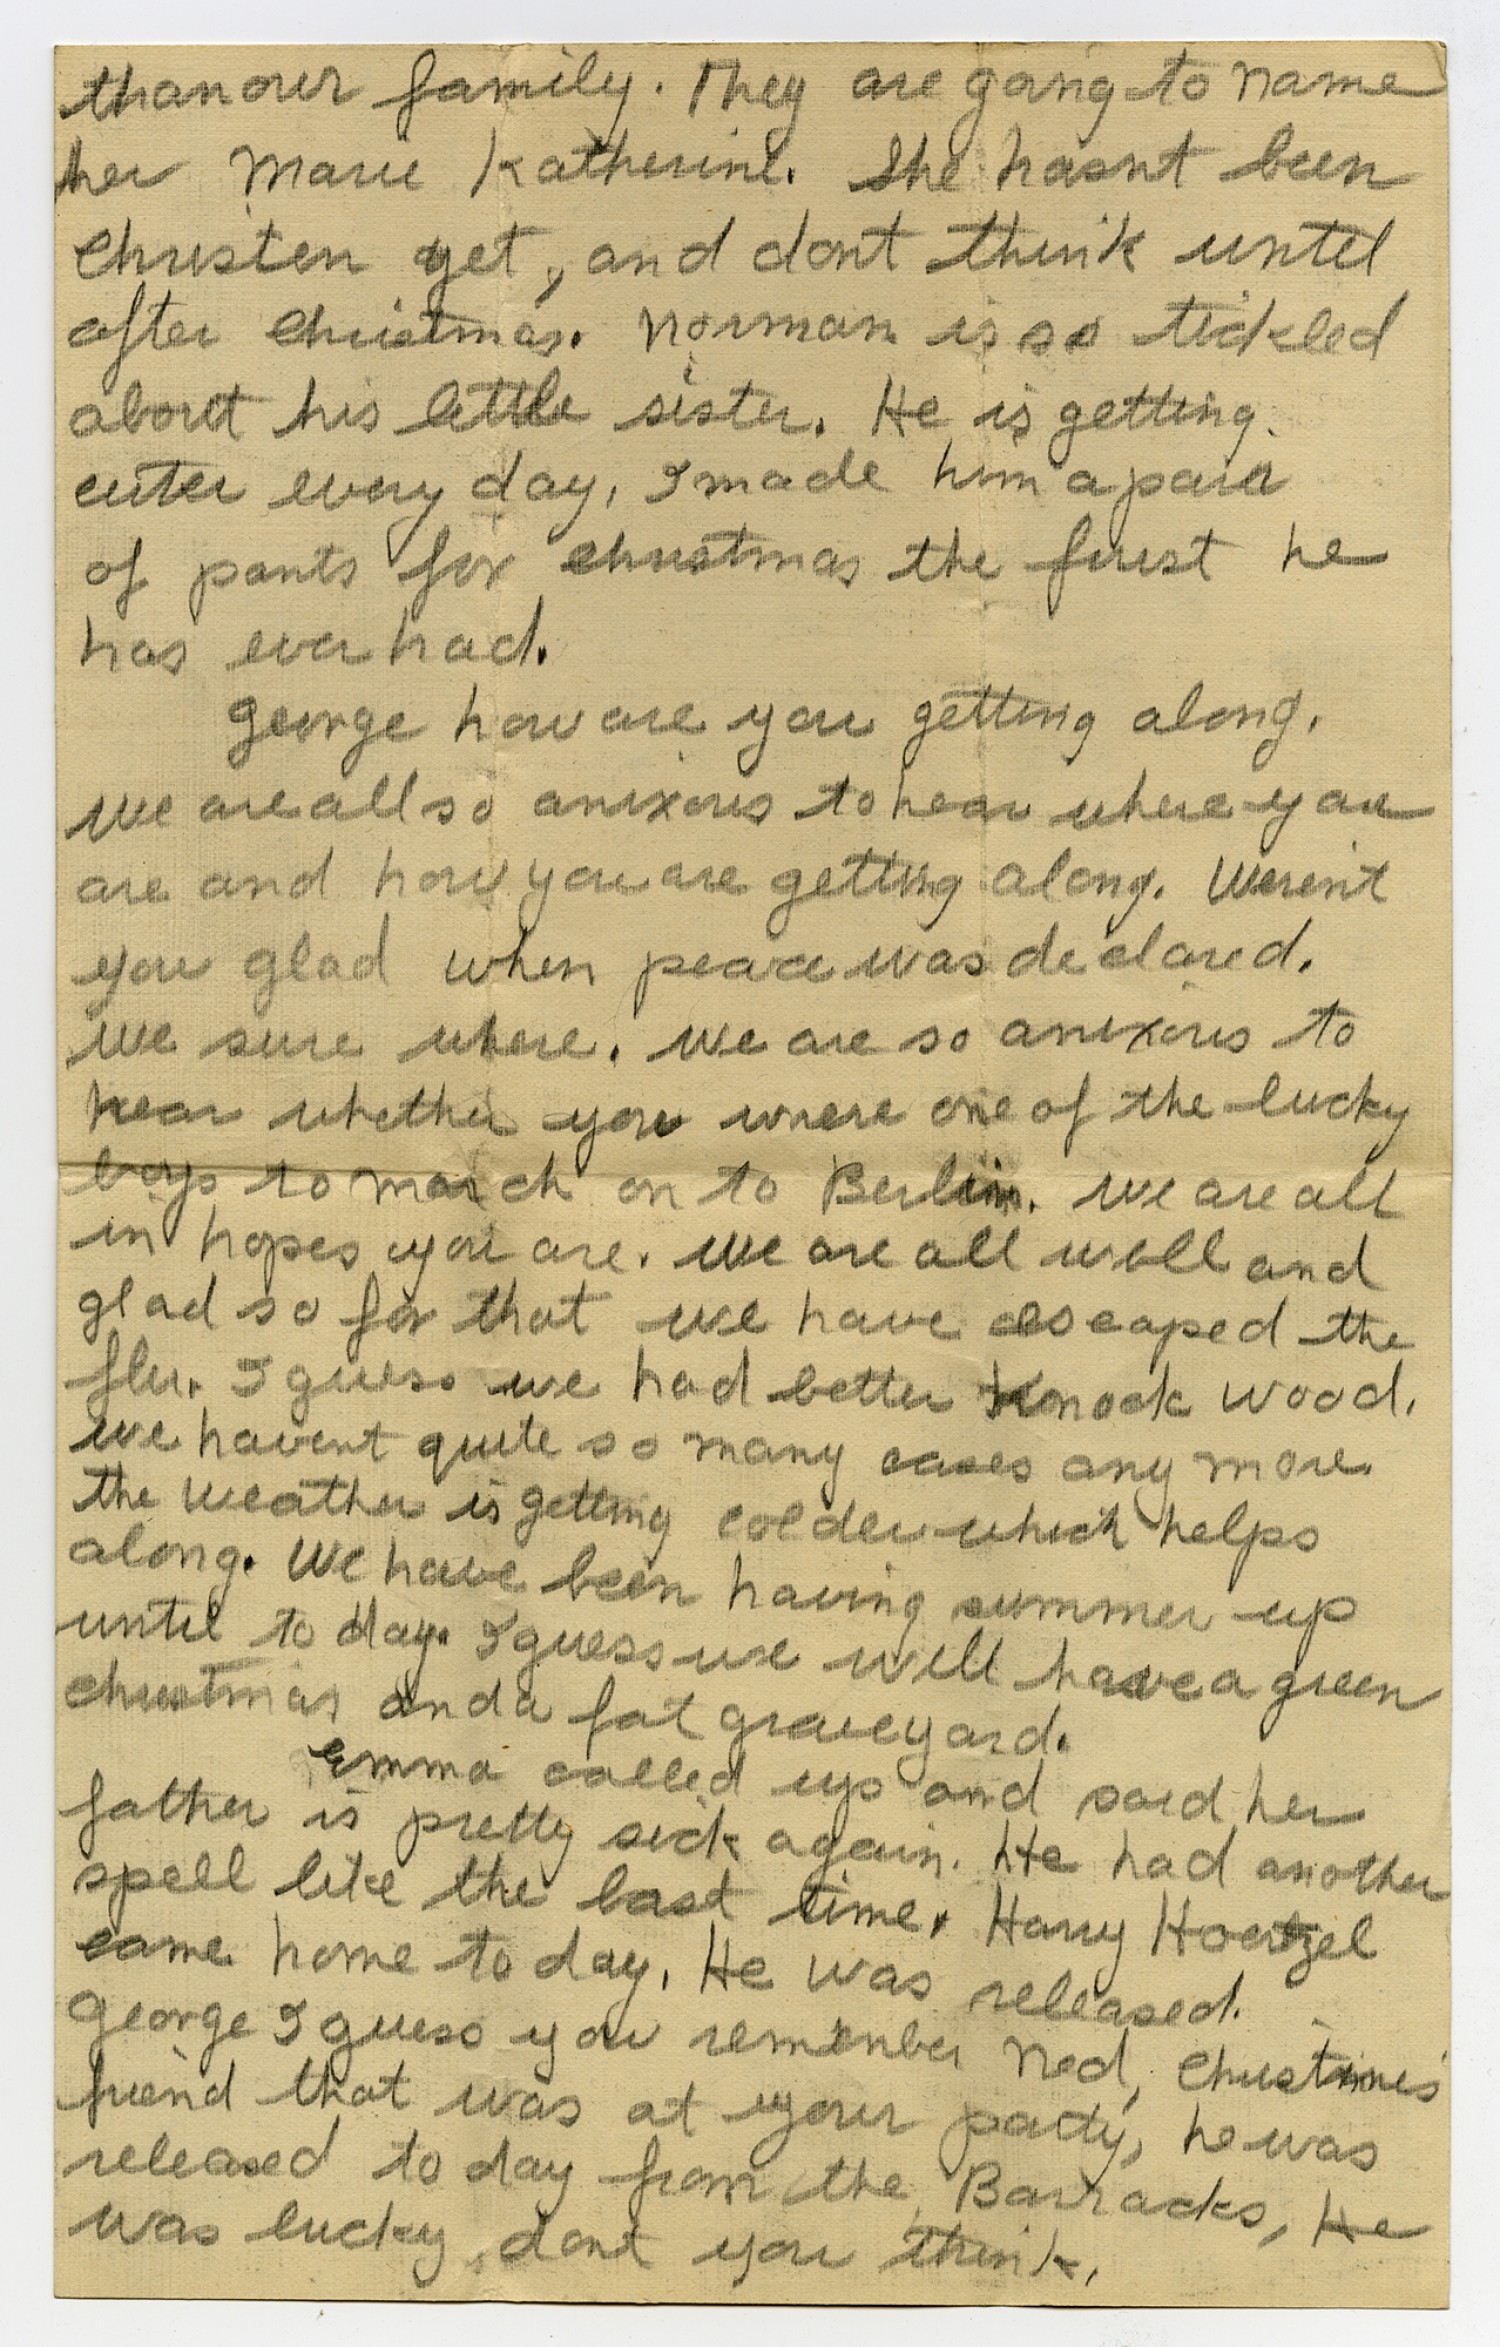 than our family. They are going to name
her Marie Katherine. She hasnt been
Christen yet, and dont think until
after Christmas. Norman is so tickled
about his little sister. He is getting
cuter every day, I made him a paia
of pants for Christmas the first he
has ever had.
George how are you getting along.
We are all so anixous to hear where you
are and how you are getting along. Weren't
you glad when peace was declared.
We sure where. We are so anixous to
hear whether you where one of the lucky
boys to march on to Berlin. We are all
in hopes you are. We are all well and
glad so far that we have escaped the
flu. I guess we had better knock wood.
We havent quite so many cases any more.
the weather is getting colder which helps
along. We have been having summer up
until to day. I guess we will have a green
Christmas and a fat graveyard.
Emma called up and said her
father is pretty sick again. He had another
spell like the last time. Harry Hoertzel
came home to day. He was released.
George I guess you remember Ned, Christines'
friend that was at your party, he was
released to day from the Barracks, He
was lucky, dont you think.